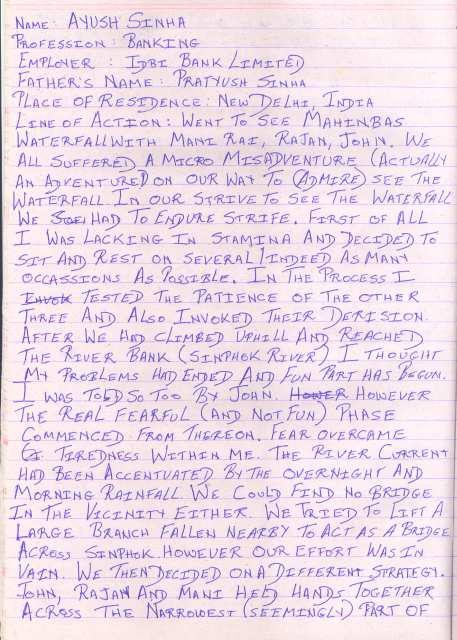 NAME: AYUSH SINHA
PROFESSION: BANKING
EMPLOYER: IDBI BANK LIMITED
FATHER'S NAME: PRATYUSH SINHA
PLACE OF RESIDENCE: NEW DELHI, INDIA
LINE OF ACTION: WENT TO SEE MAHINBAS
WATERFALL WITH MANI RAI, RAJAN, JOHN. WE
ALL SUFFERED A MICRO MISADVENTURE (ACTUALLY
AN ADVENTURE) ON OUR WAY TO (ADMIRE) SEE THE
WATERFALL. IN OUR STRIVE TO SEE THE WATERFALL
WE HAD TO ENDURE STRIFE. FIRST OF ALL
I WAS LACKING IN STAMINA AND DECIDED TO
SIT AND REST ON SEVERAL/INDEED AS MANY
OCCASSIONS AS POSSIBLE. IN THE PROCESS I
TESTED THE PATIENCE OF THE OTHER
THREE AND ALSO INVOKED THEIR DERISION.
AFTER WE HAD CLIMBED UPHILL AND REACHED
THE RIVER BANK (SINPHOK RIVER) I THOUGHT
MY PROBLEMS HAD ENDED AND FUN PART HAS BEGUN.
I WAS TOLD SO TOO BY JOHN. HOWEVER
THE REAL FEARFUL (AND NOT FUN) PHASE
COMMENCED FROM THEREON. FEAR OVERCAME
TIREDNESS WITHIN ME. THE RIVER CURRENT
HAD BEEN ACCENTUATED BY THE OVERNIGHT AND
MORNING RAINFALL. WE COULD FIND NO BRIDGE
IN THE VICINITY EITHER. WE TRIED TO LIFT A
LARGE BRANCH FALLEN NEARBY TO ACT AS A BRIDGE
ACROSS SINPHOK. HOWEVER OUR EFFORT WAS IN
VAIN. WE THEN DECIDED ON A DIFFERENT STRATEGY.
JOHN, RAJAN AND MANI HELD HANDS TOGETHER
ACROSS THE NARROWEST (SEEMINGLY) PART OF